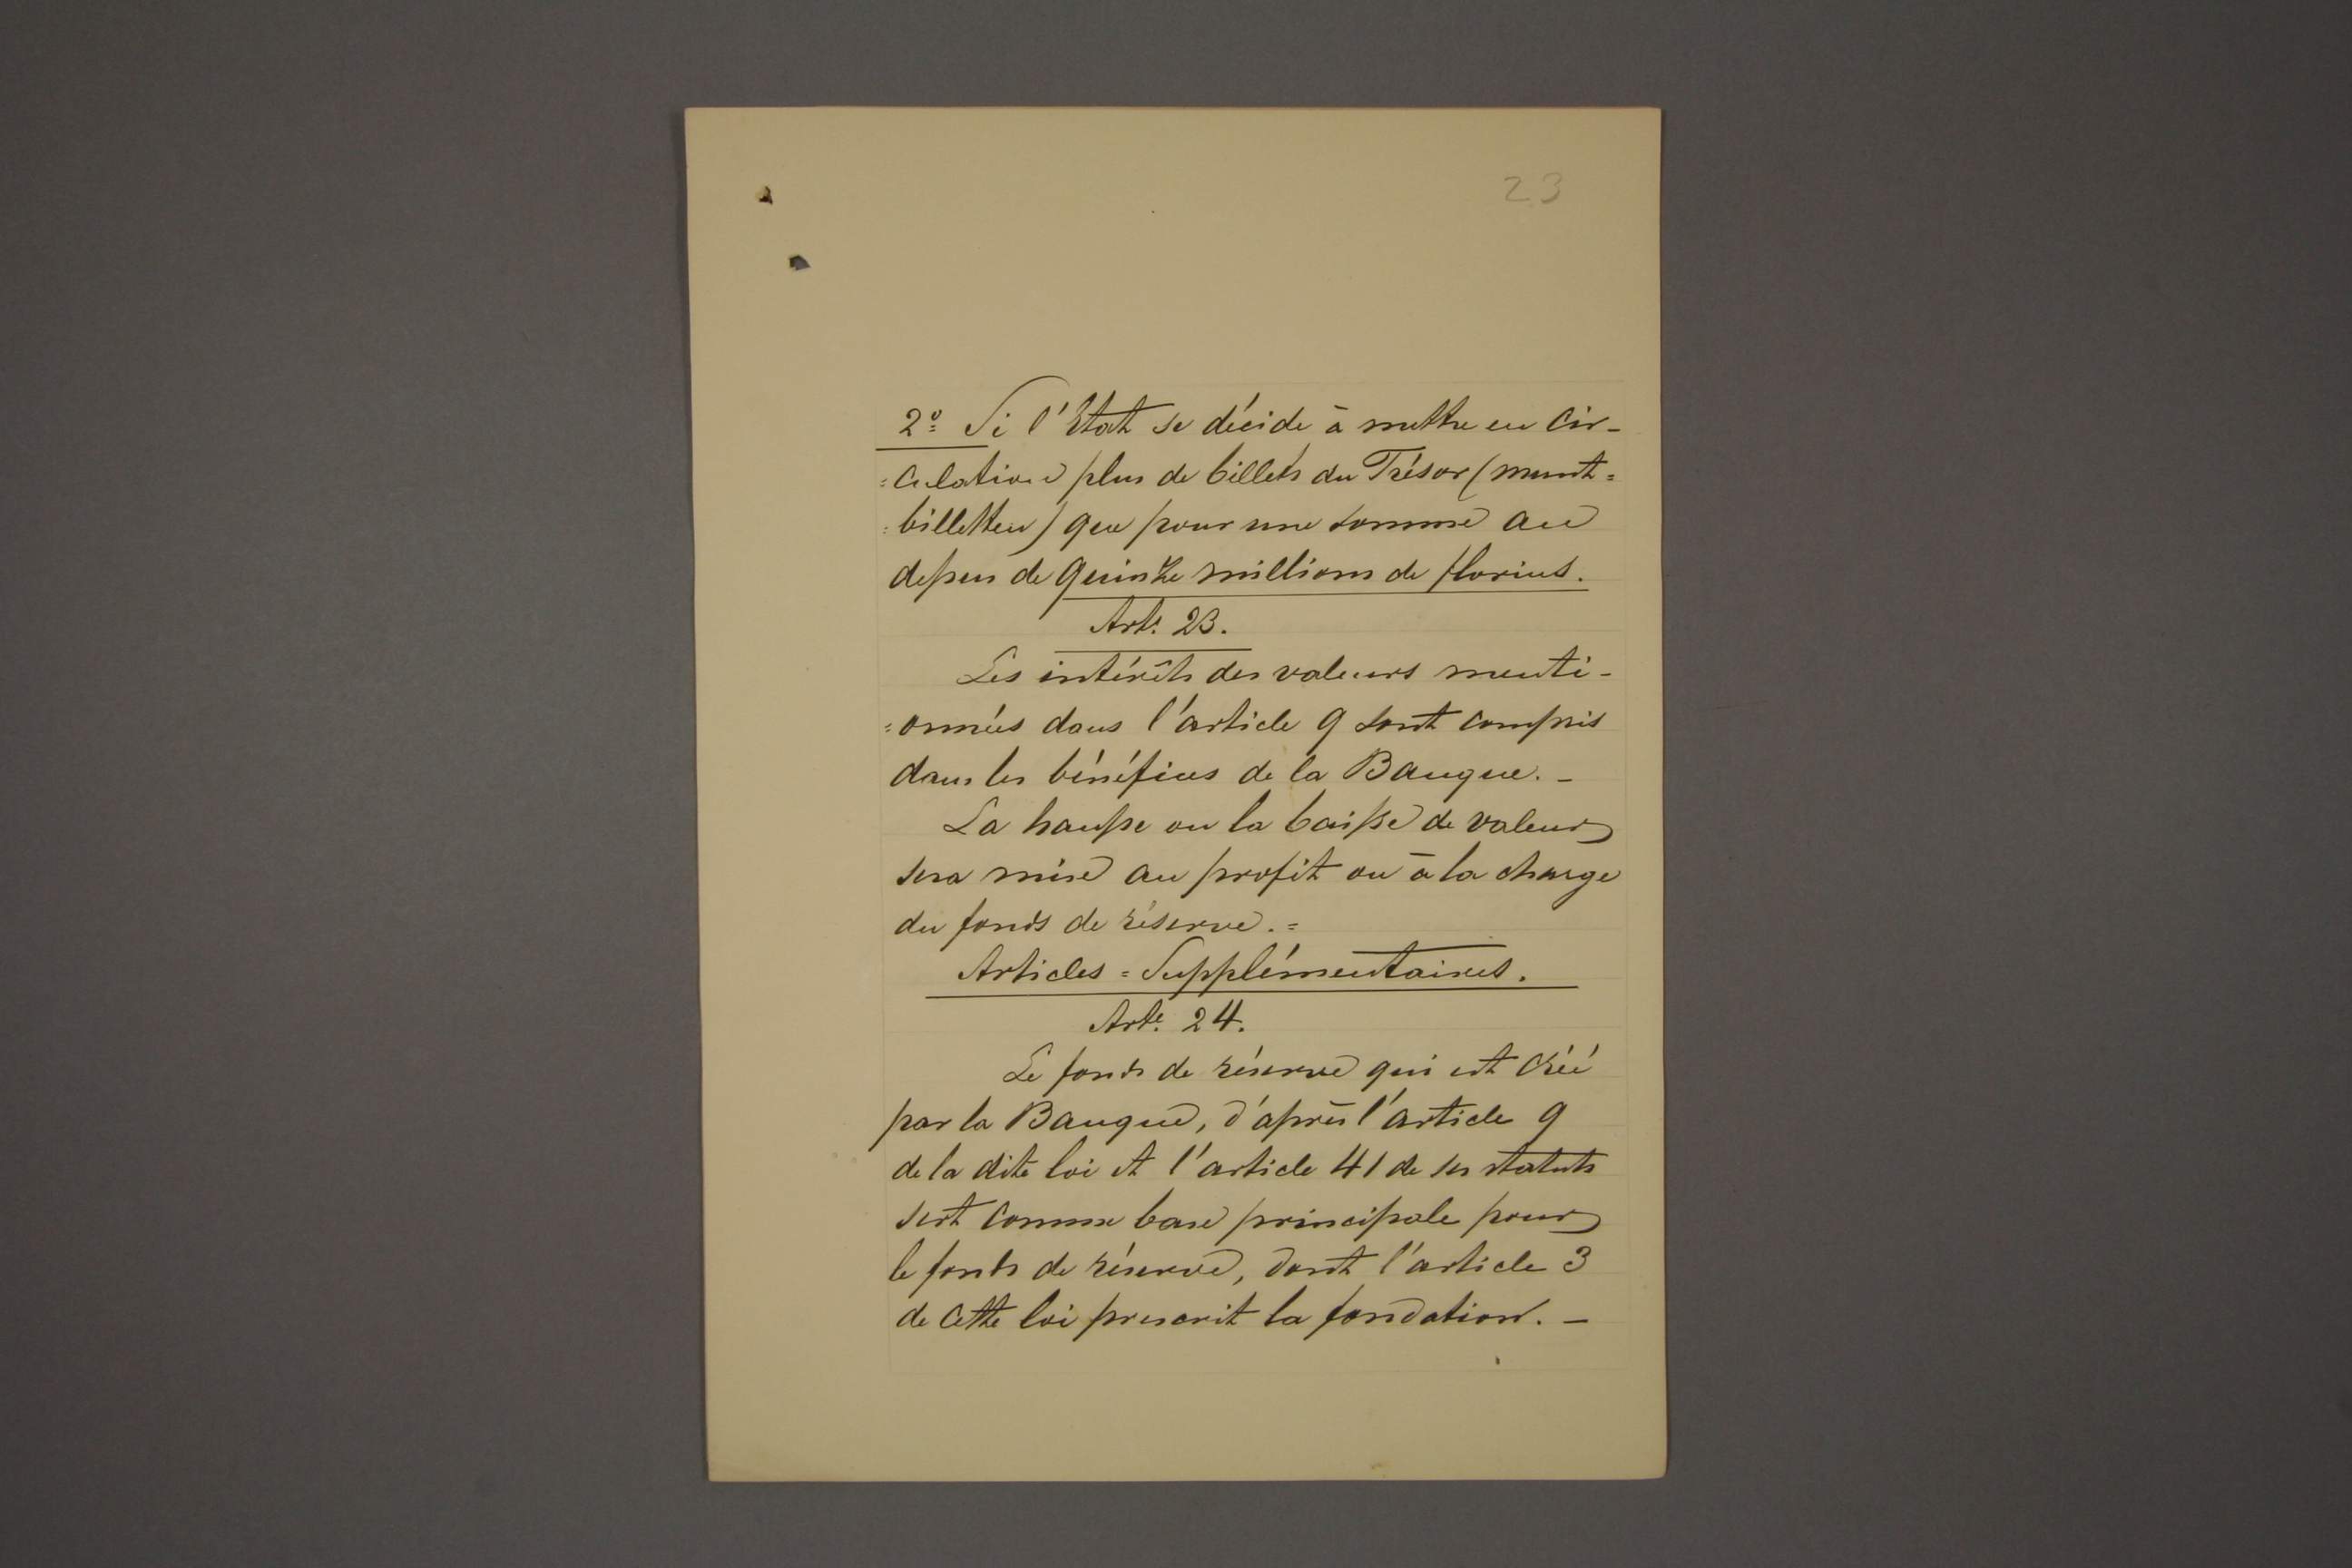 23
2º Si l'Etat se décide à mettre en cir-
=culation plus de billets du Trésor (munt=
=billetten) que pour une somme au
dessus de quinze millions de florins.
Arte. 23.
Les intérêts des valeurs menti-
=onnées dans l'article 9 sont compris
dans les bénéfices de la Banque. -
La hausse ou la baisse de valeur
sera mise au profit ou à la charge
du fonds de réserve. =
Articles = Supplémentaires.
Arte. 24.
Le fonds de réserve qui est créé
par la Banque, d'après l'article 9
de la dite loi et l'article 41 de ses statuts
sert comme base principale pour
le fonds de réserve, dont l'article 3
de cette loi prescrit la fondation. -